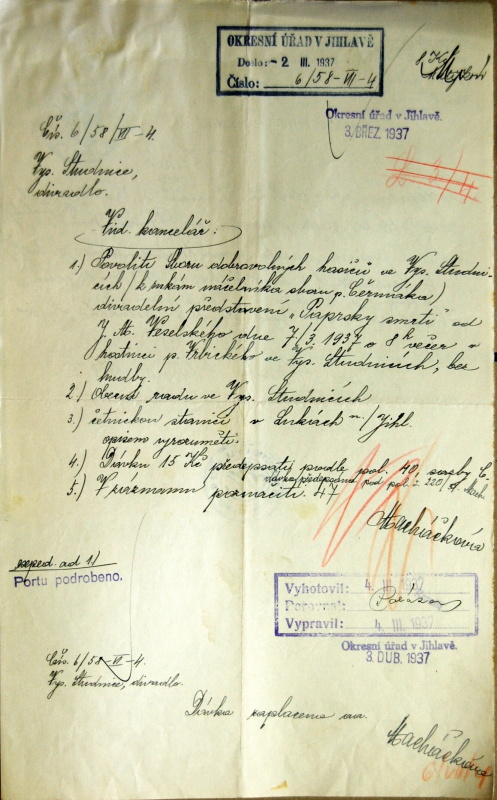 OKRESNÍ ÚŘAD V JIHLAVĚ
Došlo: - 2 III. 1937
Číslo: 6/58-VII-4
Okresní úřad v Jihlavě.
3. BŘEZ. 1937
Čís. 6/58/VII-4.
Vys. Studnice,
divadlo.
Vid. kancelář:
1.) Povoliti Sboru dobrovolných hasičů ve Vys. Studni-
cích /k rukám náčelníka sboru p. Čermáka/
divadelní představení „Paprsky smrti" od
J. M. Veselského dne 7/3. 1937 o 8 h večer v
hostinci p. Vrbického ve Vys. Studnicích, bez
hudby.
2.) Obecní radu ve Vys. Studnicích
3.) četnickou stanici v Lukách n./Jihl.
opisem vyrozuměti.
4.) Dávku 15 Kč předepsati podle pol. 40, sazby
dávka předepsána pod pol. 220/
5.) V poznamenati. 47
Macháčková
exped. ad 1/
Portu podrobeno.
Vyhotovil: 4. III. 1937
Porovnal:
Vypravil: 4. III. 1937
Okresní úřad v Jihlavě.
3. DUB. 1937
Čís. 6/58-VII-4.
Vys. Studnice, divadlo.
Dávka zaplacena
Macháčková